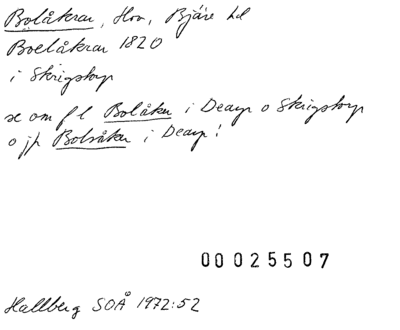 Bolåkrar, Hov, Bjäre hd
Boelåkrar 1820
i Skrigstorp
se om f l Bolåker i Dearp o Skrigstorp
o jfr Bolsåker i Dearp!
00025507
Hallberg SOÅ 1972:52